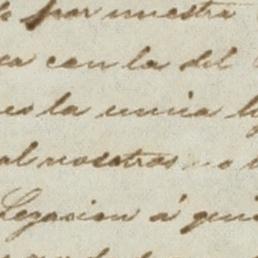 por nuestra
ca con la del
es la unica
al nosotros no
Legacion á qui